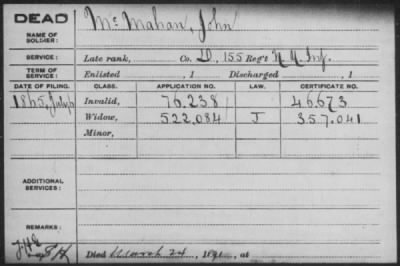 DEAD
NAME OF SOLDIER: Mc Mahan, John
SERVICE: Late rank, Co. D, 155 Reg't N.Y. Inf.
TERM OF SERVICE: Enlisted , 1 Discharged , 1
DATE OF FILING. CLASS. APPLICATION NO. LAW. CERTIFICATE NO.
1865, July 6 Invalid, 76.238 46.673
Widow, 522.084 J 357.041
Minor,
ADDITIONAL SERVICES:
REMARKS:
Died March 24, 189 , at